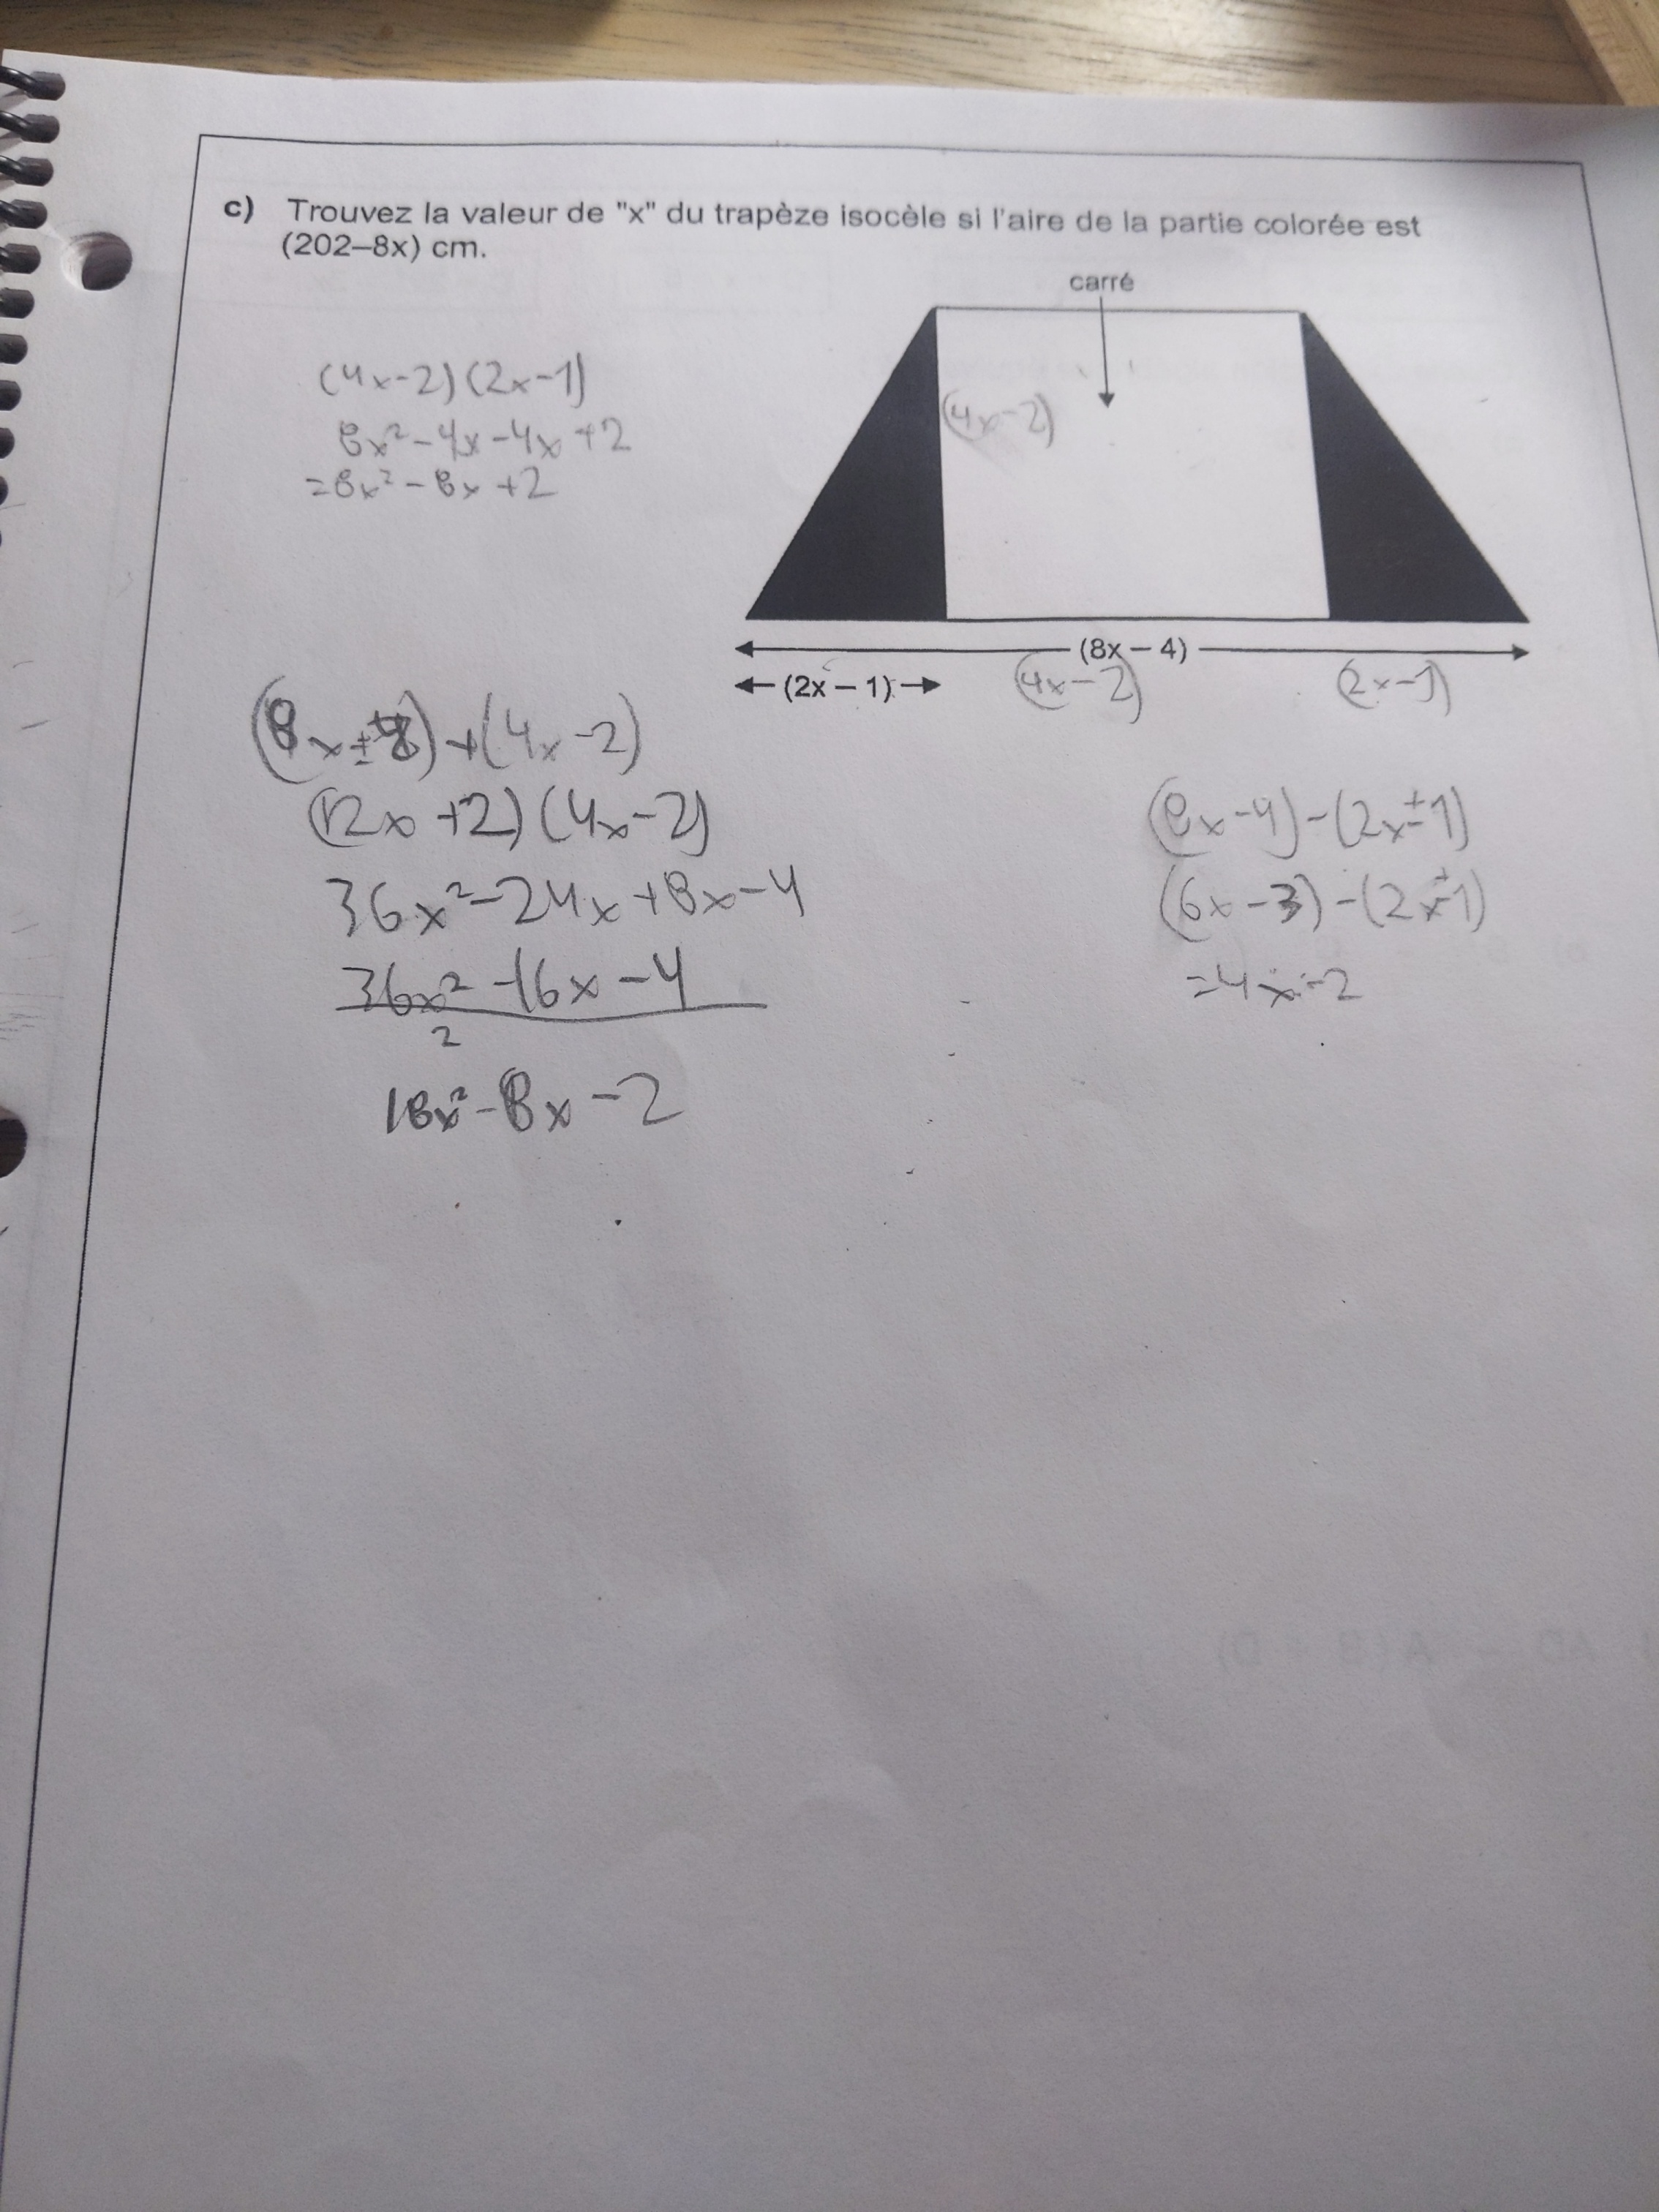 c) Trouvez la valeur de "x" du trapèze isocèle si l'aire de la partie colorée est
(202–8x) cm.
carré
(4x-2)(2x-1)
8x²-4x-4x+2
=8x²-8x+2
(4x-2)
(8x – 4)
(2x – 1)
(4x-2)
(2x-1)
+(4x-2)
(12x+2)(4x-2)
36x²-24x+8x-4
36x²-16x-4
2
18x²-8x-2
(8x-4)-(2x±1)
(6x-3)-(2x±1)
=4x-2